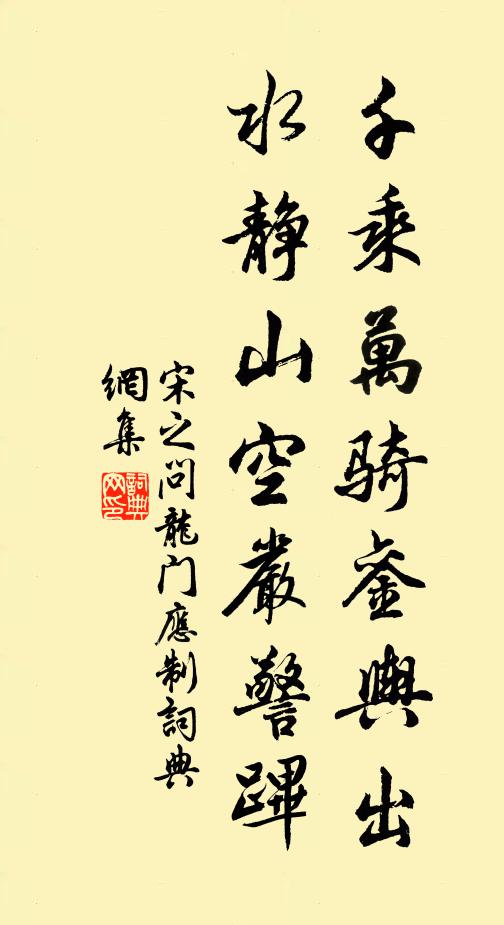 千乘萬騎銮輿出
水靜山空嚴警蹕
宋之问龍门應制詞典
網集
詞典
网印